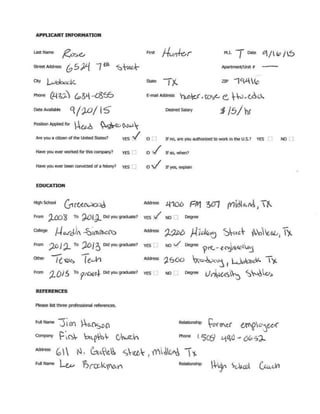 APPLICANT INFORMATION
Last Name Rose First Hunter M.I. T Date 9/16/15
Street Address 6524 7th Street Apartment/Unit #
City Lubbock State TX ZIP 79416
Phone (432) 634-0855 E-mail Address hunter.rose@ttu.edu
Date Available 9/20/15 Desired Salary $15/hr
Position Applied for Head
Are you a citizen of the United States? YES ✓ O If no, are you authorized to work in the U.S.? YES NO
Have you ever worked for this company? YES O ✓ If so, when?
Have you ever been convicted of a felony? YES O ✓ If yes, explain
EDUCATION
High School Greenwood Address 4700 FM 307 Midland, TX
From 2008 To 2012 Did you graduate? YES ✓ NO Degree
College Hardin-Simmons Address 2200 Hickory Street Abilene, Tx
From 2012 To 2013 Did you graduate? YES NO ✓ Degree pre-engineering
Other Texas Tech Address 2500 broadway, Lubbock Tx
From 2013 To present Did you graduate? YES NO Degree University Studies
REFERENCES
Please list three professional references.
Full Name Jim Relationship former employeer
Company First baptist church Phone
Address 611 N. street, midland Tx
Full Name Brockman Relationship High School Coach